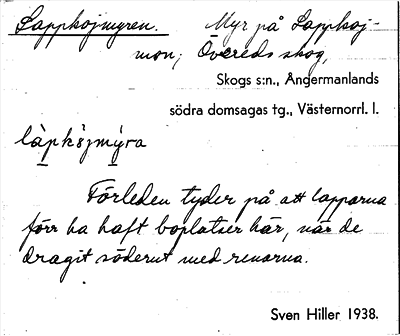 Lappkojmyren. Myr på Lappkoj-
mon; Övereds skog,
Skogs s:n., Ångermanlands
södra domsagas tg., Västernorrl. l.
làpkòjmýra
Förleden tyder på att lapparna
förr ha haft boplatser här, när de
dragit söderut med renarna.
Sven Hiller 1938.